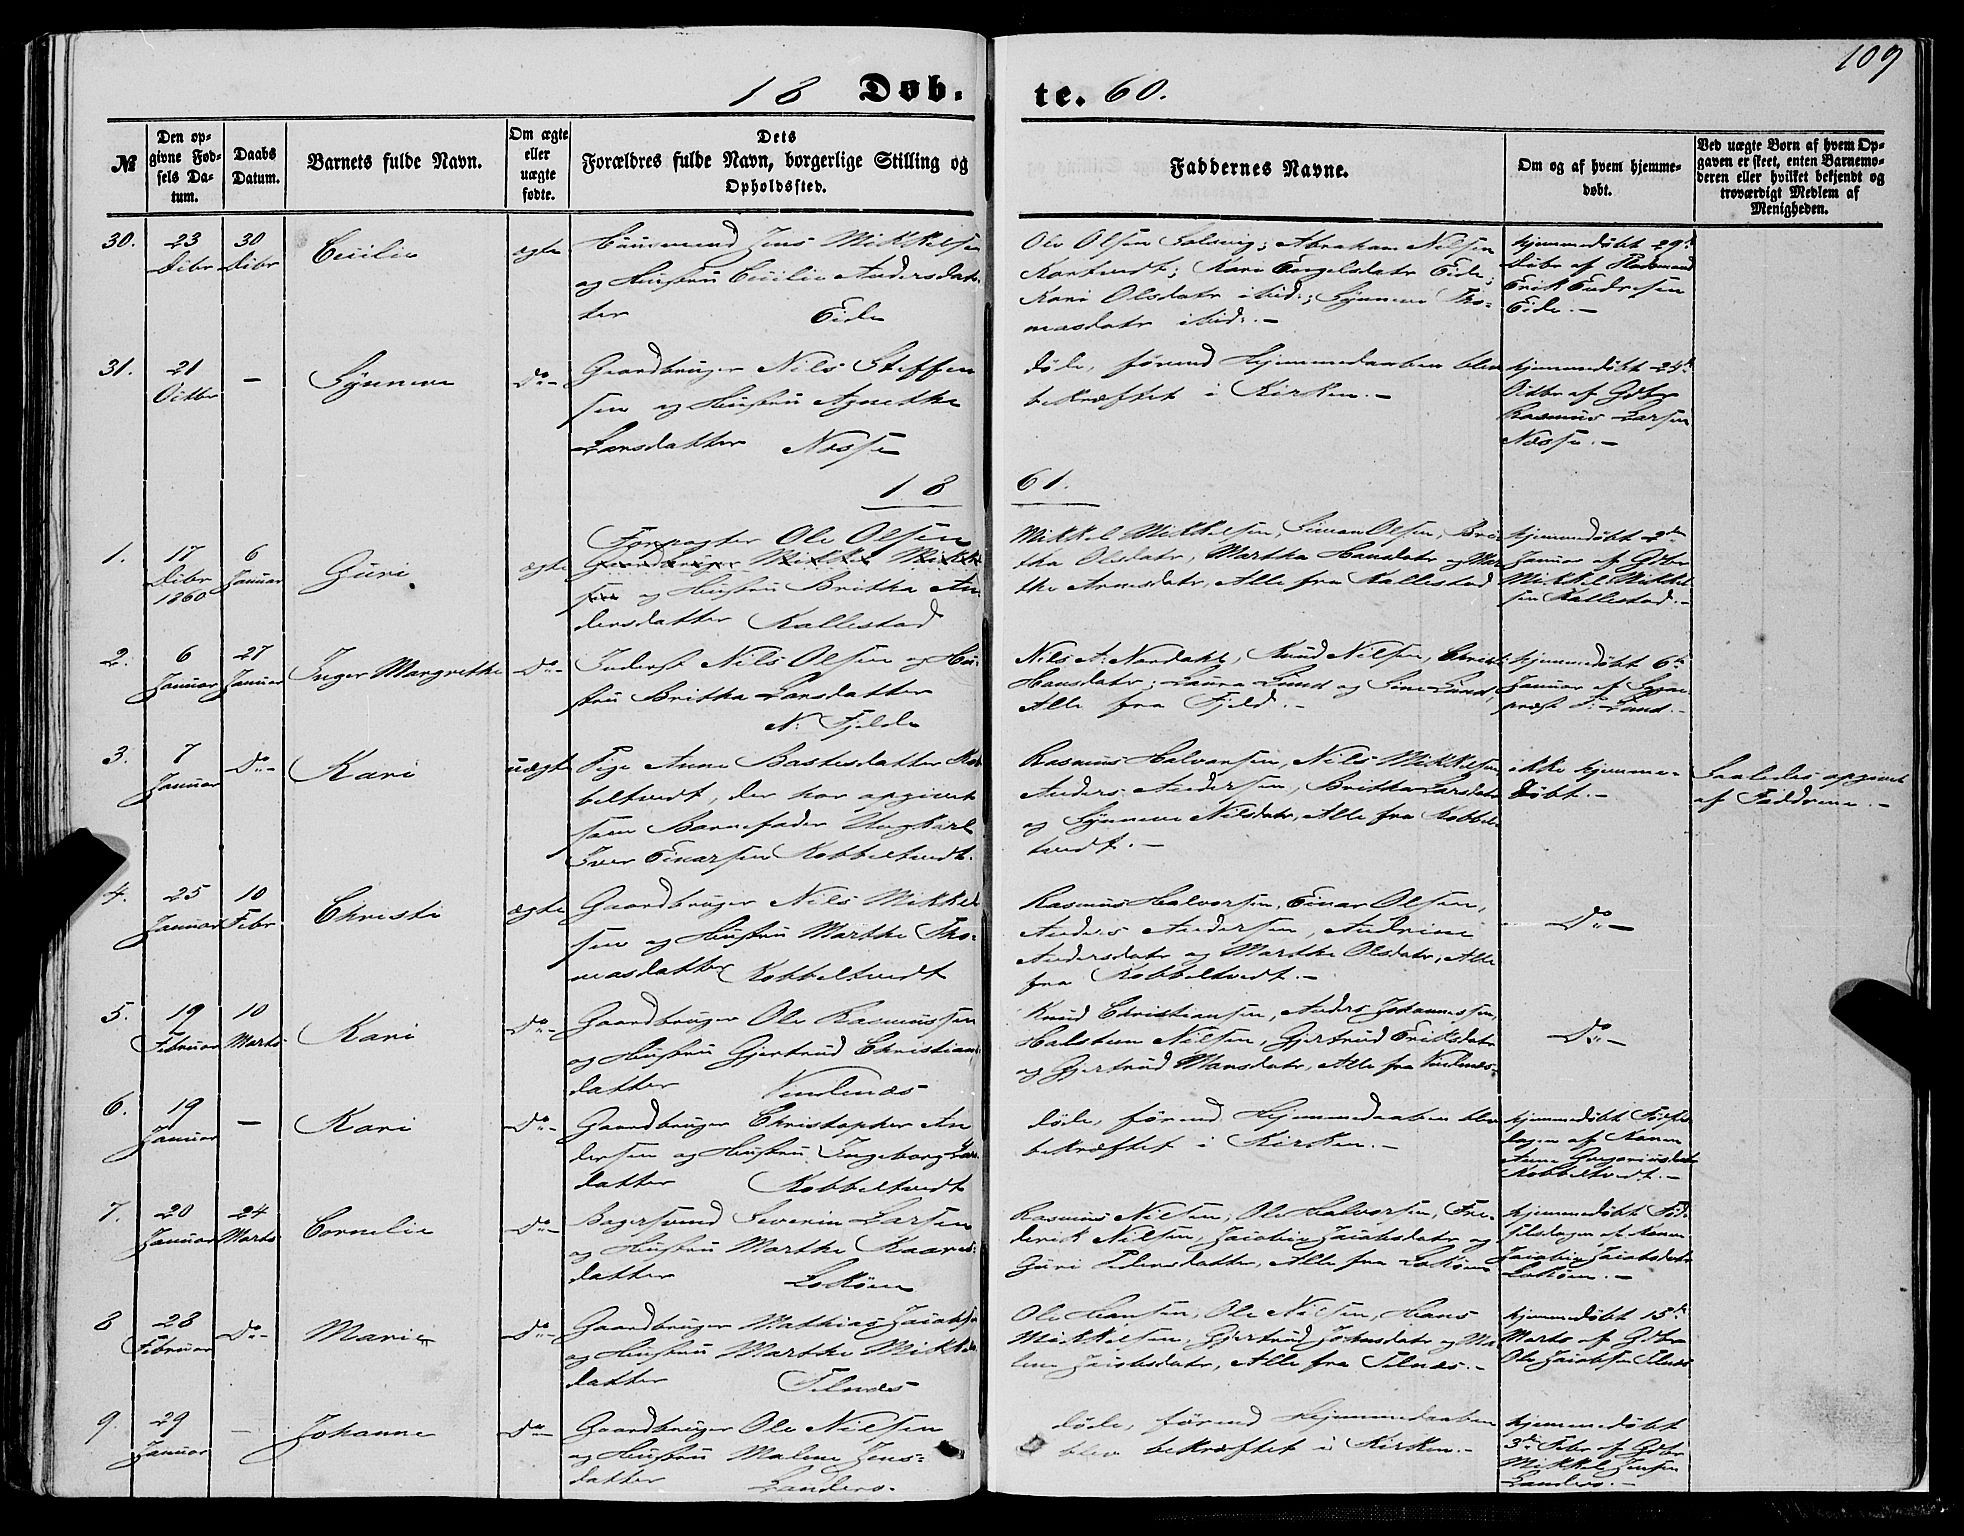 109
18 Døb. te. 60.
№
Den op-
givne Fød-
sels Da-
tum.
Daabs
Datum.
Barnets fulde Navn.
Om ægte
eller
uægte
fødte.
Dets
Forældres fulde Navn, borgerlige Stilling og
Opholdssted.
Faddernes Navne.
Om og af hvem hjemme-
døbt.
Ved uægte Børn af hvem Op-
gaven er skeet, enten Barnemo-
deren eller hvilket bekjendt og
troværdigt Medlem af
Menigheden.
30.
23
Dcbr
30
Dcbr
Cecilie
ægte
Huusmand Jens Mikkelsen
og Hustru Cecilie Andersdat-
ter Eide
Ole Olsen Solsvig; Abraham Nilsen
Kari Engelsdatr Eide;
Kari Olsdatr ibid.; Synneve Tho-
masdatr ibid. –
hjemmedøbt 29de
Dcbr af
Erik Endresen
Eide. –
31.
21
Octbr
–
Synneve
Do –
Gaardbruger Nils Steffen
sen og Hustru Agnethe
Larsdatter Nesse
døde, førend Hjemmedaaben blev
bekræftet i Kirken. –
hjemmedøbt 24de
Octbr af Gdbr
Rasmus Larsen
Nesse. –
18 61.
1.
17
Dcbr
1860
6
Januar
Guri
ægte
Forpagter Ole Olsen
Gaardbruger Mikkel Mikkel
sen og Hustru Britha An-
dersdatter Kallestad
Mikkel Mikkelsen, Simon Olsen, Bri-
tha Olsdatr, Martha Hansdatr og Mar
the Arnesdatr, Alle fra Kallestad
hjemmedøbt 2den
Januar af Gdbr
Mikkel Mikkel
sen Kallestad. –
2.
6
Januar
27
Januar
Inger Margrethe
Do –
Inderst Nils Olsen og Hu-
stru Britha Larsdatter
N. Fjelde
Nils A. Nordahl, Knud Nilsen, Christi
Hansdatr, Laura Lund og Sine Lund,
Alle fra Fjeld. –
hjemmedøbt 6te
Januar af Sogne
præst F. Lund. –
3.
7
Januar
Do –
Kari
uægte
Pige Anne Bastesdatter Kob
beltvedt, der har opgivet
som Barnefader Ungkarl
Iver Einarsen Kobbeltvedt.
Rasmus Halvorsen, Nils Mikkelsen,
Anders Andersen, Britha Larsdatr
og Synneve Nilsdatr, Alle fra Kobbel
tvedt. –
ikke hjemme-
døbt. –
Saaledes opgivet
af Faddrene. –
4.
25
Januar
10
Febr
Christi
ægte
Gaardbruger Nils Mikkel
sen og Hustru Marthe Tho-
masdatter Kobbeltvedt
Rasmus Halvorsen, Einar Olsen,
Anders Andersen, Andrine
Andersdatr og Marthe Olsdatr, Alle
fra Kobbeltvedt. –
Do –
5.
19
Februar
10
Marts
Kari
Do –
Gaardbruger Ole Rasmussen
og Hustru Gjertrud Christians
datter Vindenæs
Knud Christiansen, Anders Johannessen,
Halsten Nilsen, Gjertrud Eriksdatr
og Gjertrud Monsdatr, Alle fra Vindenæs –
Do –
6.
19
Januar
–
Kari
Do –
Gaardbruger Christopher An
dersen og Hustru Ingeborg Lars
datter Kobbeltvedt
døde, førend Hjemmedaaben blev
bekræftet i Kirken. –
hjemmedøbt Fødsels
dagen af Konen
Anne Gregoriusdatr
Kobbeltvedt. –
7.
20
Januar
24
Marts
Cornelie
Do –
Bagersvend Severin Larsen
og Hustru Marthe Kaares-
datter Lokøen
Rasmus Nilsen, Ole Halvorsen, Fre-
derik Nilsen, Jacobine Jacobsdatr og
Guri Pedersdatter, Alle fra Lokøen
hjemmedøbt Fød-
selsdagen af Konen
Jacobine Jacobsdatr
Lokøen. –
8
28
Februar
Do –
Marie
Do –
Gaardbruger Mathias Jacobse
og Hustru Marthe Mikkels
datter Telnæs
Ole Hansen, Ole Nilsen, Hans
Mikkelsen, Gjertrud Johnsdatr og Ma
lene Jacobsdatr, Alle fra Telnæs. –
hjemmedøbt 15de
Marts af Gdbr
Ole Jacobsen Telnæs
9.
29
Januar
–
Johanne
Do –
Gaardbruger Ole Nilsen
og Hustru Malene Jens-
datter Landero.
døde, førend Hjemmedaaben
blev bekræftet i Kirken. –
hjemmedøbt
3de Febr af Gdbr
Mikkel Jensen
Landero. –